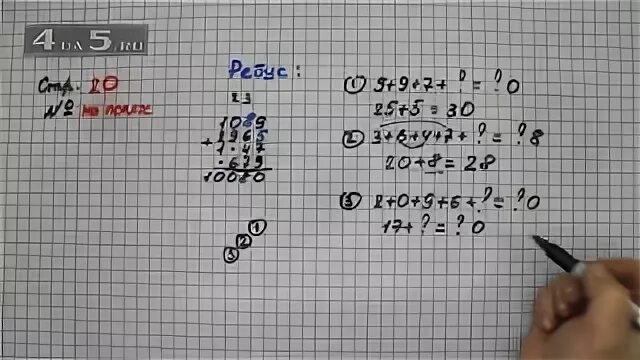 4 DA 5.RU
Стр. 20
№ на полях
Ребус:
2 3
1089
+ 1965
1·47
·679
10080
① 9+9+7+?=?0
25+5=30
② 3+6+4+7+?=?8
20+8=28
③ 2+0+9+6+?=?0
17+?=?0
①
②
③